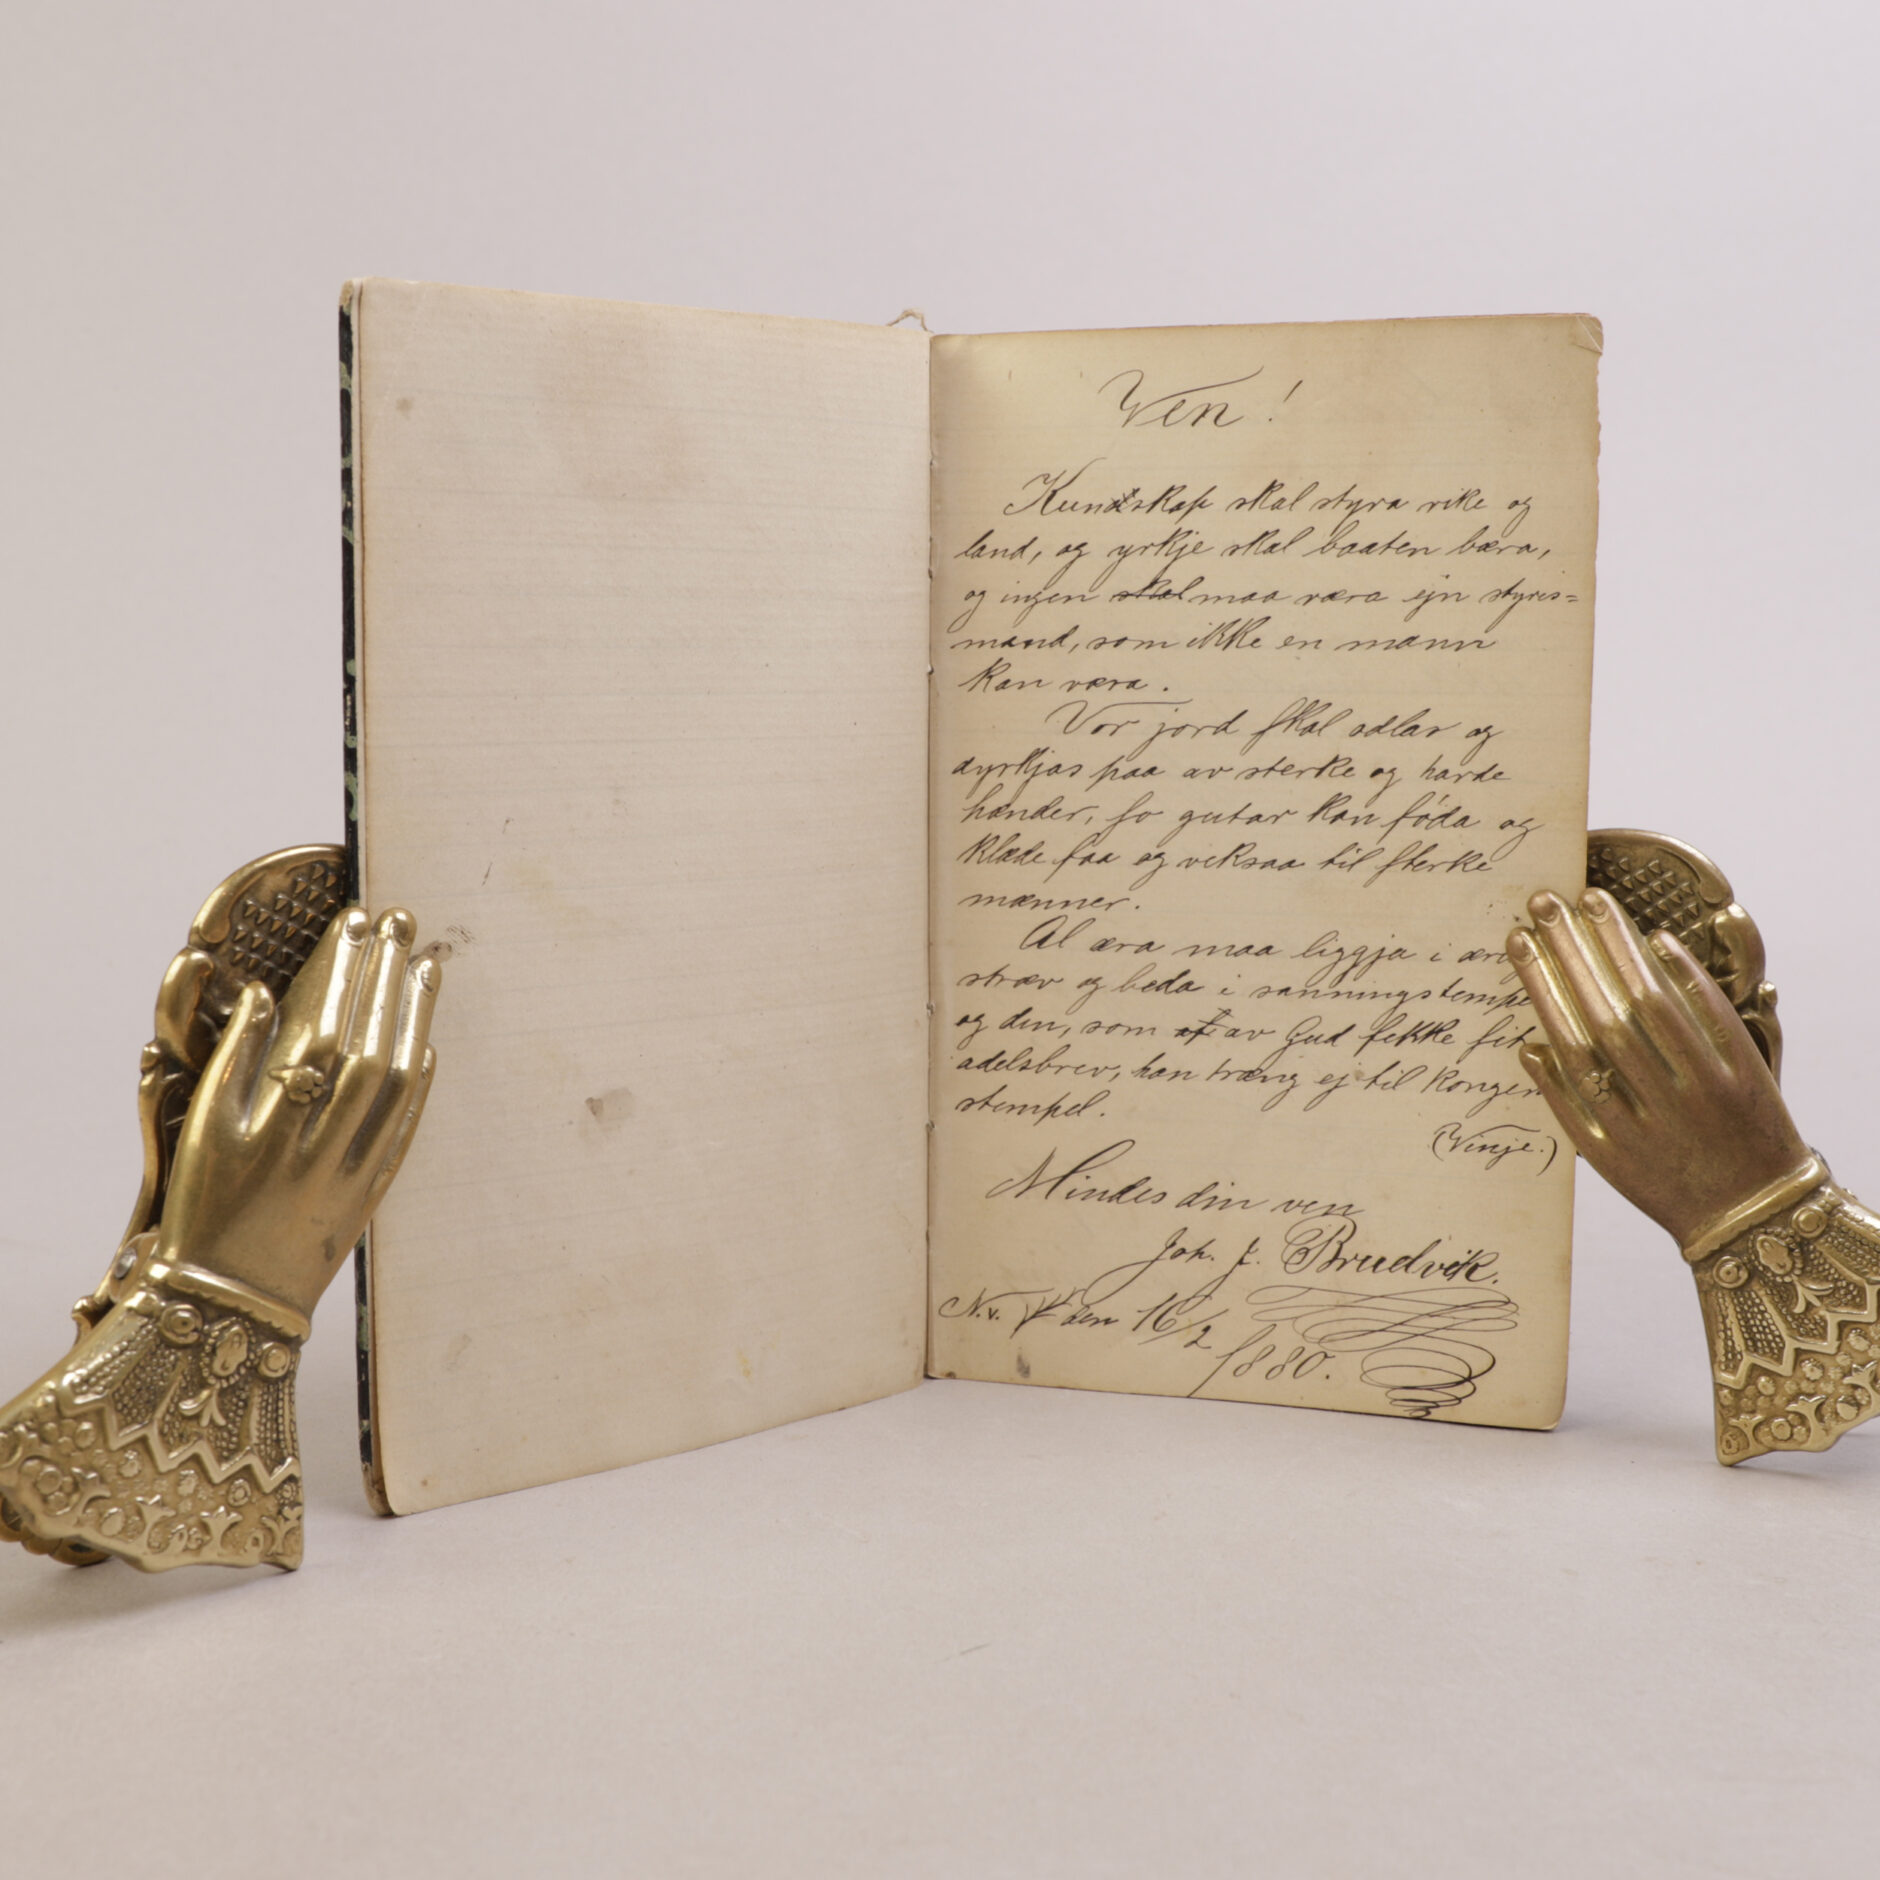 Ven!
Kundskap skal styra rike og
land, og yrkje skal baaten bæra,
og ingen skal maa væra ejn styris=
mand, som ikke en mann
kan væra.
Vor jord skal odlas og
dyrkjas paa av sterke og harde
hænder, so gutar kan föda og
klæde faa og veksaa til sterke
mænner.
Al æra maa liggja i
stræv og beda i sanningstempe
og den, som af av Gud fekke sit
adelsbrev, han træng ej til kongen
stempel.
(Vinje.)
Mindes din ven
Joh. J. Brudvik.
N.v. den 16/2
1880.